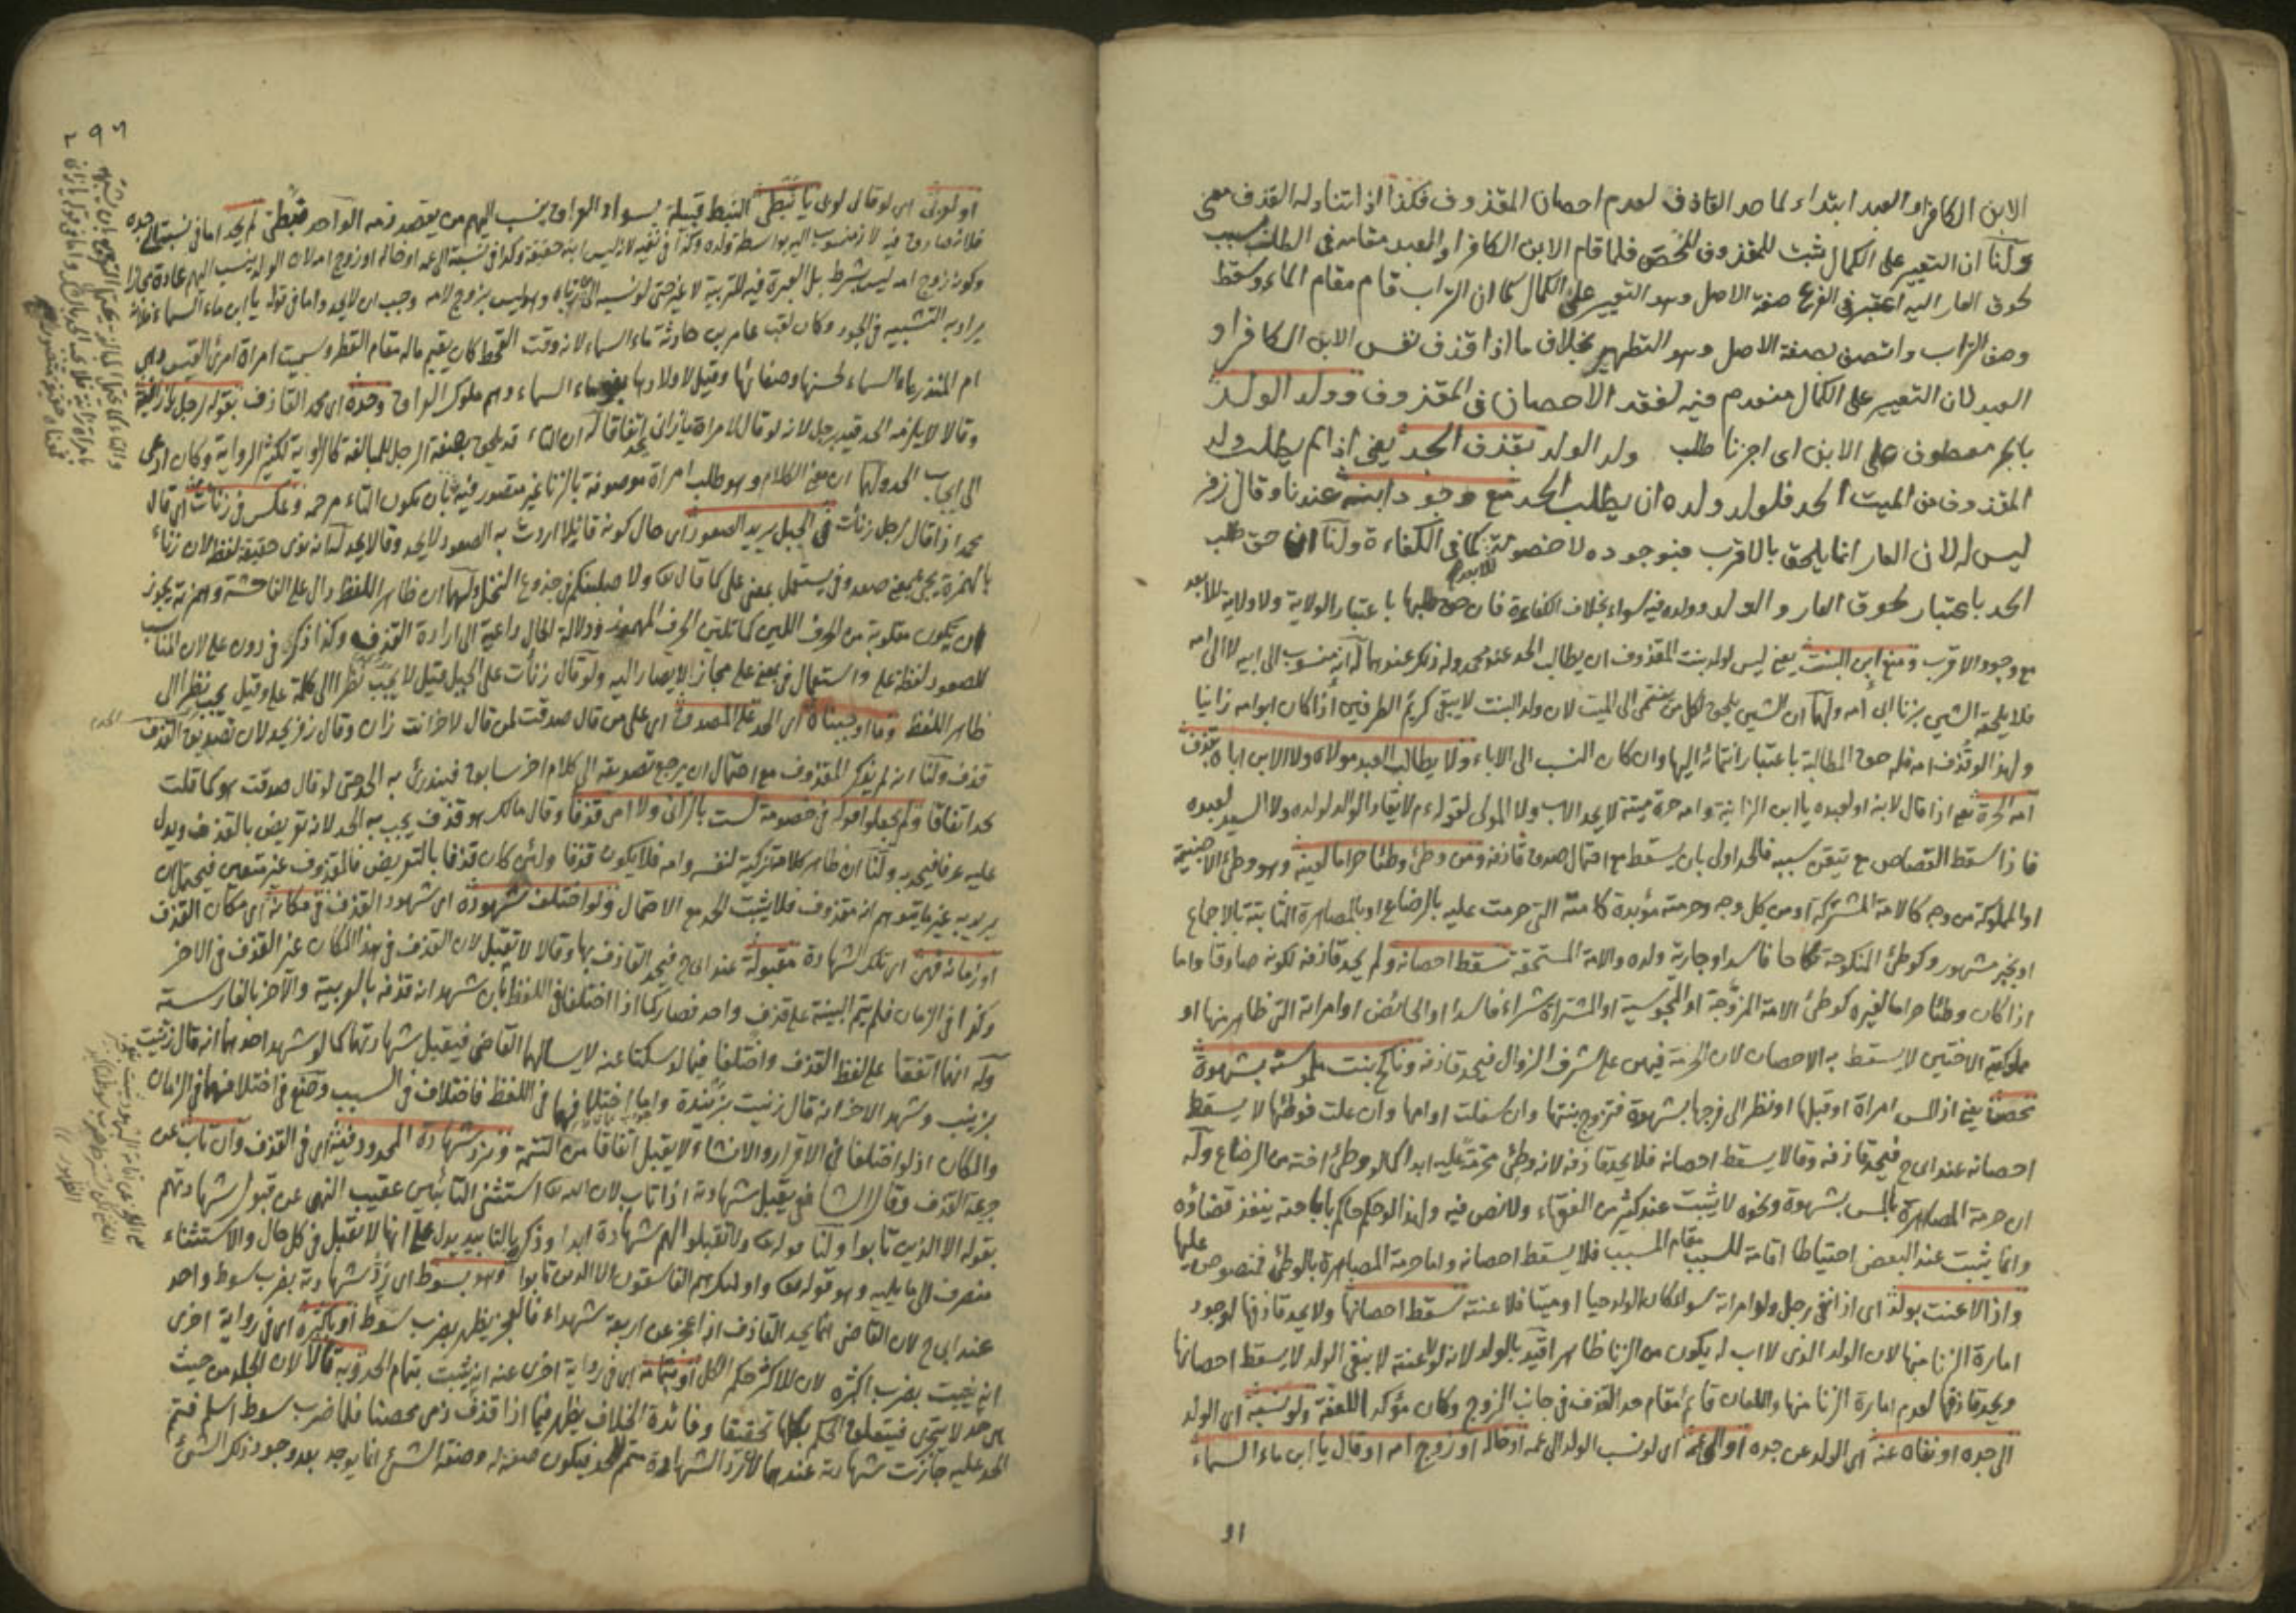 الابن الكافر او العبد ابتداء لما حد القاذف لعدم احصان المقذوف فكذا اذا تناوله القذف معنى
ولنا ان التعيير على الكمال ثبت للمقذوف المحصن فلما قام الابن الكافر او العبد مقامه فى الطلب بسبب
لحوق العار اليه اعتبر فى الفرع صفة الاصل وهو التعيير على الكمال كما ان التراب قام مقام الماء وسقط
وصف التراب واتصف بصفة الاصل وهو التطهير بخلاف ما اذا قذف نفس الابن الكافر او
العبد لان التعيير على الكمال منعدم فيه لفقد الاحصان فى المقذوف وولد الولد
بالجر معطوف على الابن اى اجزنا طلب ولد الولد بقذف الحد يعنى اذا لم يطلب ولد
المقذوف من الميت الحد فلولد ولده ان يطلب الحد مع وجود ابنه عندنا وقال زفر
ليس له لان العار انما يلحق بالاقرب فبوجوده لا خصومة للابعد كما فى الكفاءة ولنا ان حق طلب
الحد باعتبار لحوق العار والولد وولده فيه سواء بخلاف الكفاءة فان حق طلبها باعتبار الولاية ولا ولاية للابعد
مع وجود الاقرب ومنع ابن البنت يعنى ليس لولد بنت المقذوف ان يطالب الحد عند محمد وله ذلك عندهما له انه منسوب الى ابيه لا الى امه
فلا يلحقه الشين بزنا ابى امه ولهما ان الشين يلحق لكل من ينتمى الى الميت لان ولد البنت لا يبقى كريم الطرفين اذا كان ابو امه زانيا
ولهذا لو قذف امه فله حق المطالبة باعتبار انتمائه اليها وان كان النسب الى الاباء ولا يطالب العبد مولاه ولا الابن اباه بقذف
امه الحرة يعنى اذا قال لابنه او لعبده يا ابن الزانية وامه حرة ميتة لا يحد الاب ولا المولى لقوله عم لا يقاد الوالد لولده ولا السيد لعبده
فاذا سقط القصاص مع تيقن سببه فالحد اولى بان يسقط مع احتمال صدق قاذفه ومن وطئ وطئا حراما لعينه وهو وطئ الاجنبية
او المملوكة من وجه كالامة المشتركة او من كل وجه وحرمته مؤبدة كامته التى حرمت عليه بالرضاع او بالمصاهرة الثابتة بالاجماع
او بخبر مشهور وكوطئ المنكوحة نكاحا فاسدا وجارية ولده والامة المستحقة سقط احصانه ولم يحد قاذفه لكونه صادقا واما
اذا كان وطئا حراما لغيره كوطئ الامة المزوجة او المجوسية او المشتراة شراء فاسدا او الحائض او امراته التى ظاهر منها او
مملوكتيه الاختين لا يسقط به الاحصان لان الحرمة فيهن على شرف الزوال فيحد قاذفه وناكح بنت ملموسته بشهوة
محصن يعنى اذا لمس امراة او قبلها او نظر الى فرجها بشهوة فتزوج بنتها وان سفلت او امها وان علت فوطئها لا يسقط
احصانه عند ابى ح فيحد قاذفه وقالا يسقط احصانه فلا يحد قاذفه لانه وطئ محرمة عليه ابدا كما لو وطئ اخته من الرضاع وله
ان حرمة المصاهرة باللمس بشهوة ونحوه لا يثبت عند كثير من الفقهاء ولا نص فيه ولهذا لو حكم حاكم باباحته ينفذ قضاؤه
وانما يثبت عند البعض احتياطا اقامة للسبب مقام المسبب فلا يسقط احصانه واما حرمة المصاهرة بالوطئ فمنصوص عليها
واذا لاعنت بولد اى اذا نفى رجل ولد امراته سواء كان الولد حيا او ميتا فلاعنته سقط احصانها ولا يحد قاذفها لوجود
امارة الزنا منها لان الولد الذى لا اب له يكون من الزنا ظاهرا قيد بالولد لانه لو لاعنته لا بنفى الولد لا يسقط احصانها
ويحد قاذفها لعدم امارة الزنا منها واللعان قائم مقام حد القذف فى جانب الزوج وكان مؤكد العفة ولو نسبه اى الولد
الى جده او نفاه عنه اى الولد عن جده او الى عمه اى لو نسب الولد الى عمه او خاله او زوج امه او قال يا ابن ماء السماء
او
٢٩٦
او لعربى اى لو قال لعربى يا نبطى النبط قبيلة بسواد العراق ينسب اليهم من يقصد ذمه الواحد نبطى لم يحد اما فى نسبته الى جده
فلانه صادق فيه لانه منسوب اليه بواسطة ولده وكذا فى نفيه لانه ليس ابنه حقيقة وكذا فى نسبته الى عمه او خاله او زوج امه لان الولد ينسب اليهم عادة مجازا
وكونه زوج امه ليس بشرط بل العبرة فيه للتربية لا غير حتى لو نسبه الى من رباه وهو ليس بزوج لامه وجب ان لا يحد واما فى قوله يا ابن ماء السماء فلانه
يراد به التشبيه فى الجود وكان لقب عامر بن حارثة ماء السماء لانه وقت القحط كان يقيم ماله مقام القطر وسميت امراة امرئ القيس وهى
ام المنذر بماء السماء لحسنها وصفائها وقيل لاولادها بنو ماء السماء وهم ملوك العراق وحده اى محمد القاذف بقوله لرجل يا زانية
وقالا لا يلزمه الحد قيد برجل لانه لو قال لامراة يا زانى يحد اتفاقا له ان التاء قد يلحق بصفة الرجل للمبالغة كالراوية لكثير الرواية وكان ادعى
الى ايجاب الحد ولهما ان معنى الكلام وهو طلب امراة موصوفة بالزنا غير متصور فيه بان يكون التاء مرخمه وعكس فى زنات اى قال
محمد اذا قال لرجل زنات فى الجبل يريد الصعود اى حال كونه قائلا اردت به الصعود لا يحد وقالا يحد له انه نوى حقيقة لفظه لان زناء
بالهمزة يجئ بمعنى صعد وفى يستعمل بمعنى على كما قال الله ولاصلبنكم فى جذوع النخل ولهما ان ظاهر اللفظ دال على الفاحشة وهمزته يجوز
ان يكون مقلوبة من الحرف اللين كما تلين الحرف المهموز ودلالة الحال داعية الى ارادة القذف وكذا ذكر فى دون على لان المناسب
للصعود لفظة على واستعمال فى بمعنى على مجاز لا يصار اليه ولو قال زنات على الجبل قيل لا يجب نظرا الى كلمة على وقيل يجب نظرا الى
ظاهر اللفظ وما اوجبناه اى الحد على المصدق اى على من قال صدقت لمن قال لاخر انت زان وقال زفر يحد لان تصديق القذف
قذف ولنا انه لم يذكر المقذوف مع احتمال ان يرجع تصديقه الى كلام اخر سابق فيندرئ به الحد حتى لو قال صدقت هو كما قلت
يحد اتفاقا ولم يجعلوا قوله فى خصومة لست بالزانى ولا امى قذفا وقال مالك هو قذف يجب به الحد لانه تعريض بالقذف ويدل
عليه عرفا فيحد به ولنا ان ظاهر كلامه تزكية لنفسه وامه فلا يكون قذفا ولئن كان قذفا بالتعريض فالمقذوف غير متعين فيحتمل ان
يريد به غير ما يتوهم انه مقذوف فلا يثبت الحد مع الاحتمال ولو اختلف شهوده اى شهود القذف فى مكانه اى مكان القذف
او زمانه فهى اى تلك الشهادة مقبولة عند ابى ح فيحد القاذف بها وقالا لا تقبل لان القذف فى هذا المكان غير القذف فى الاخر
وكذا فى الزمان فلم يتم البينة على قذف واحد فصار كما اذا اختلفا فى اللفظ بان شهد انه قذفه بالعربية والآخر بالفارسية
وله انهما اتفقا على لفظ القذف واختلفا فيما لو سكتا عنه لا يسالهما القاضى فيقبل شهادتهما كما لو شهد احدهما انه قال زنيت
بزينب وشهد الاخر انه قال زنيت بزبيدة واما اختلافهما فى اللفظ فاختلاف فى السبب وضع فى اختلافهما فى الزمان
والمكان اذ لو اختلفا فى الاقرار والانشاء لا يقبل اتفاقا من التتمة ونرد شهادة المحدود فيه اى فى القذف وان تاب عن
جريمة القذف وقال الشافعى يقبل شهادته اذا تاب لان الله استثنى التائبين عقيب النهى عن قبول شهادتهم
بقوله الا الذين تابوا ولنا قوله تعالى ولا تقبلوا لهم شهادة ابدا وذكره بالتابيد يدل على انها لا تقبل فى كل حال والاستثناء
منصرف الى ما يليه وهو قوله تعالى واولئك هم الفاسقون الا الذين تابوا وهو بسوط اى رد شهادته بضرب سوط واحد
عند ابى ح لان القاضى انما يحد القاذف اذا عجز عن اربعة شهداء فالعجز يظهر بضرب سوط او باكثره اى فى رواية اخرى
انه يثبت بضرب اكثره لان للاكثر حكم الكل او بتمامه اى فى رواية اخرى عنه انه يثبت بتمام الحد وبه قالا لان الجلد من حيث
هى حد لا يتجزى فيتعلق الحكم بكلها تحقيقا وفائدة الخلاف يظهر فيما اذا قذف ذمى محصنا فلما ضرب سوط اسلم فتمم
الحد عليه جازت شهادته عندهما لان رد الشهادة متمم للحد فيكون صفة له وصفة الشئ انما يوجد بعد وجود ذلك الشئ